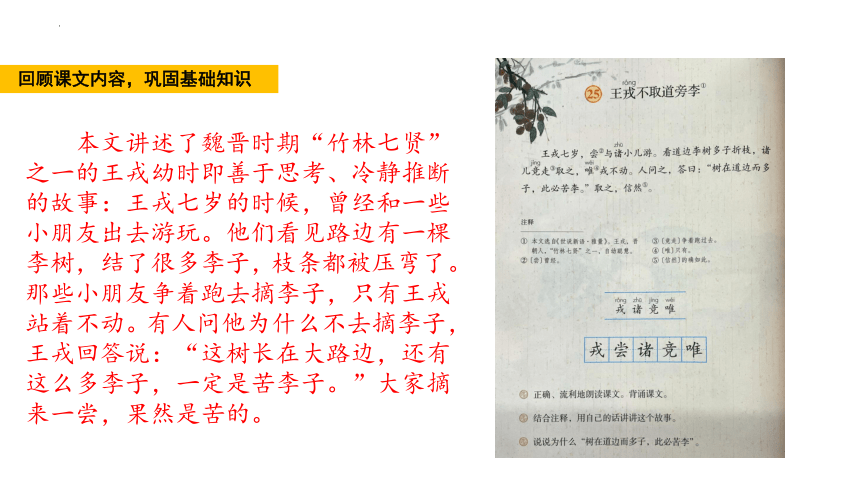 回顾课文内容，巩固基础知识
本文讲述了魏晋时期“竹林七贤”
之一的王戎幼时即善于思考、冷静推断
的故事：王戎七岁的时候，曾经和一些
小朋友出去游玩。他们看见路边有一棵
李树，结了很多李子，枝条都被压弯了。
那些小朋友争着跑去摘李子，只有王戎
站着不动。有人问他为什么不去摘李子，
王戎回答说：“这树长在大路边，还有
这么多李子，一定是苦李子。”大家摘
来一尝，果然是苦的。
róng
25 王戎不取道旁李①
zhū
王戎七岁，尝②与诸小儿游。看道边李树多子折枝，诸
jìng wéi
儿竞走③取之，唯④戎不动。人问之，答曰：“树在道边而多
子，此必苦李。”取之，信然⑤。
注释
① 本文选自《世说新语·雅量》。王戎，晋
朝人，“竹林七贤”之一，自幼聪慧。
② 〔尝〕曾经。
③ 〔竞走〕争着跑过去。
④ 〔唯〕只有。
⑤ 〔信然〕的确如此。
róng zhū jìng wéi
戎 诸 竞 唯
戎 尝 诸 竞 唯
正确、流利地朗读课文。背诵课文。
结合注释，用自己的话讲讲这个故事。
说说为什么“树在道边而多子，此必苦李”。